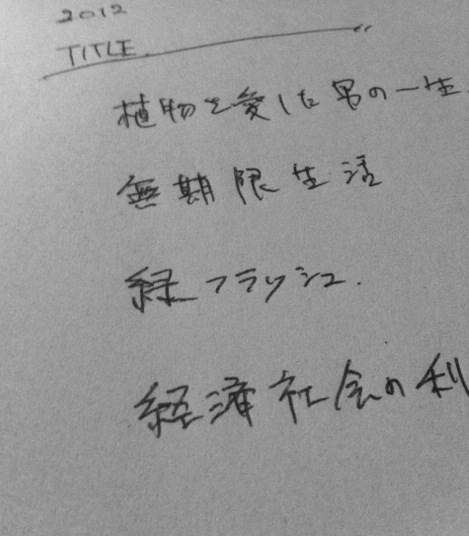 2012
TITLE
植物を愛した男の一生.
無期限生活
緑フラッシュ.
経済社会の利